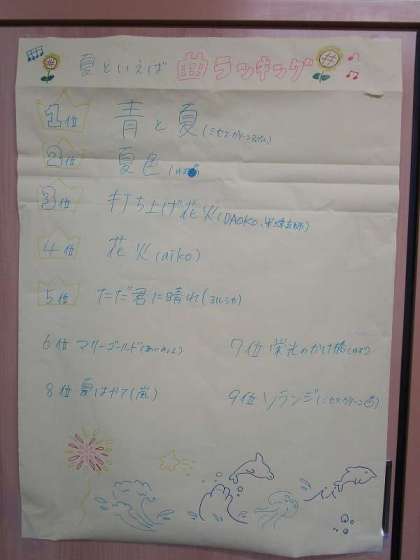 夏といえば 曲ランキング
1位 青と夏(ミセスグリーンアップル)
2位 夏色(ゆず)
3位 打ち上げ花火(DAOKO、米津玄師)
4位 花火(aiko)
5位 ただ君に晴れ(ヨルシカ)
6位 マリーゴールド(あいみょん) 7位 栄光のかけ橋(ゆず)
8位 夏はやて(嵐) 9位 ソランジ(ミセスグリーン)